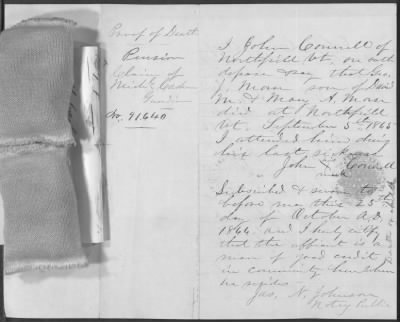 Proof of Death
Pension
Claim of
Guardian
No. 91640
I John Connell of
Northfield Vt. on oath
depose & say that Geo.
J. Morse son of David
M. & Mary A. Morse
died at Northfield
Vt. September 5th 1865
I attended him during
his last sickness
John X Connell
mark
Subscribed & sworn to
before me this 25th
day of October A.D.
1866 and I hereby certify
that the affiant is a
man of good credit
in community where
he resides
Jas. N. Johnson
Notary Public